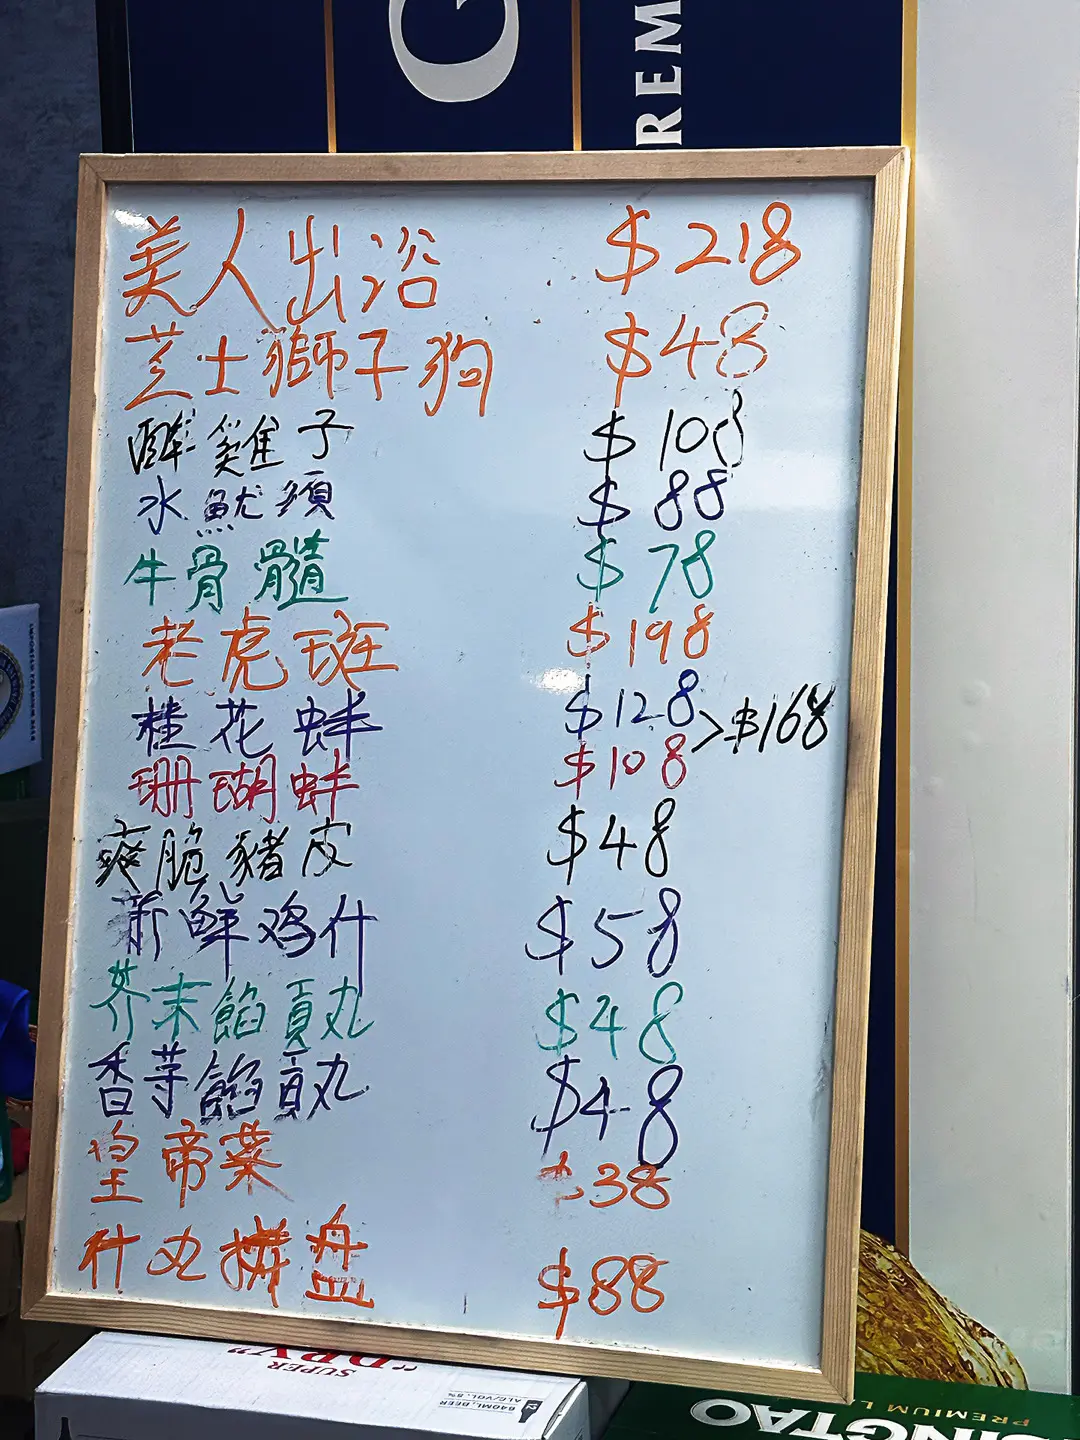 G
REM
美人出浴 $218
芝士獅子狗 $48
醉雞子 $108
水魷須 $88
牛骨髓 $78
老虎斑 $198
桂花蚌 $128
>$168
珊瑚蚌 $108
爽脆豬皮 $48
新鮮鸡什 $58
芥末餡貢丸 $48
香芋餡貢丸 $48
皇帝菜 $38
什丸拼盘 $88
IMPORTED PREMIUM BEER
SUPER
"DRY"
640ML, BEER
ALC/VOL. 5%
SINGTAO
PREMIUM L